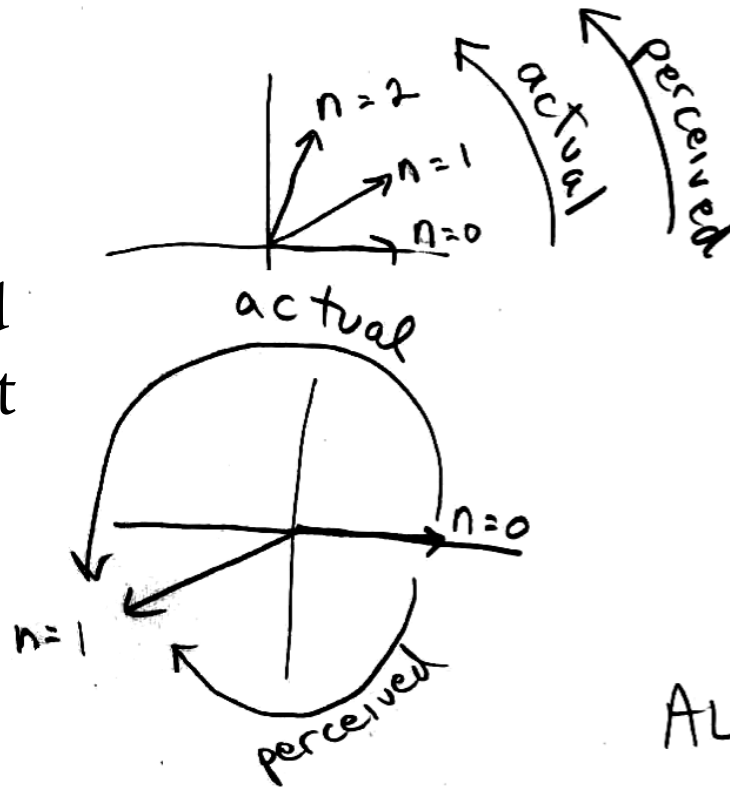 n = 2
n = 1
n = 0
actual
perceived
actual
l
t
n = 0
n = 1
perceived
AL